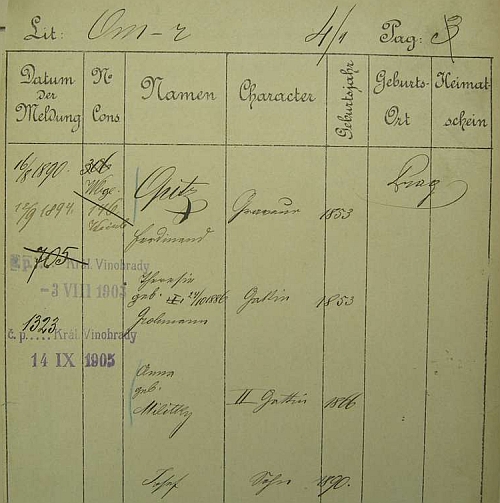 Lit: Om-r 4/1 Pag: 3
Datum der Meldung
N Cons
Namen
Character
Geburtsjahr
Geburts-Ort
Heimat-schein
16/8 1890.
306
Opitz
Prag
12/9 1894.
Graveur 1853
Ferdinand
705
Král. Vinohrady
Theresie
-3 VIII 1905
geb. 24/10 1886 Gattin 1853
1323
Grohmann
č. p. .... Král. Vinohrady
14 IX 1905
Anna
geb.
Militky II Gattin 1866
Josef Sohn 1890.